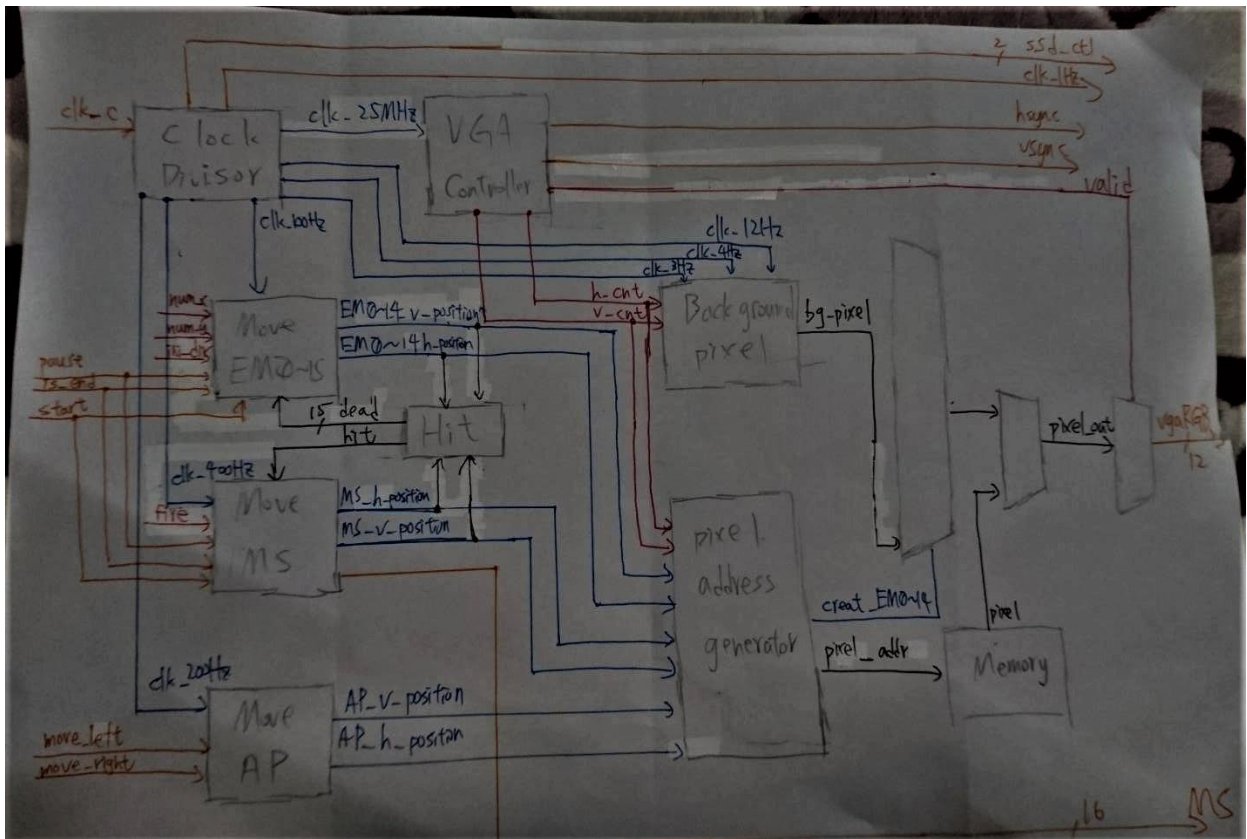 2 ssd_ctl
clk_1Hz
clk_c
Clock
Divisor
clk_25MHz
VGA
Controller
hsync
vsync
valid
clk_100Hz
clk_12Hz
clk_4Hz
h_cnt
v_cnt
Background
pixel
bg-pixel
Move
EM0~15
EM0~14 v-position
EM0~14 h-position
pause
start
15 dead
hit
Hit
clk_400Hz
fire
Move
MS
MS_h-position
MS_v-position
pixel
address
generator
creat_EM0~14
pixel_addr
pixel
Memory
pixel_out
vgaRGB
12
clk_200Hz
move_left
move_right
Move
AP
AP_v_position
AP_h_position
16 MS